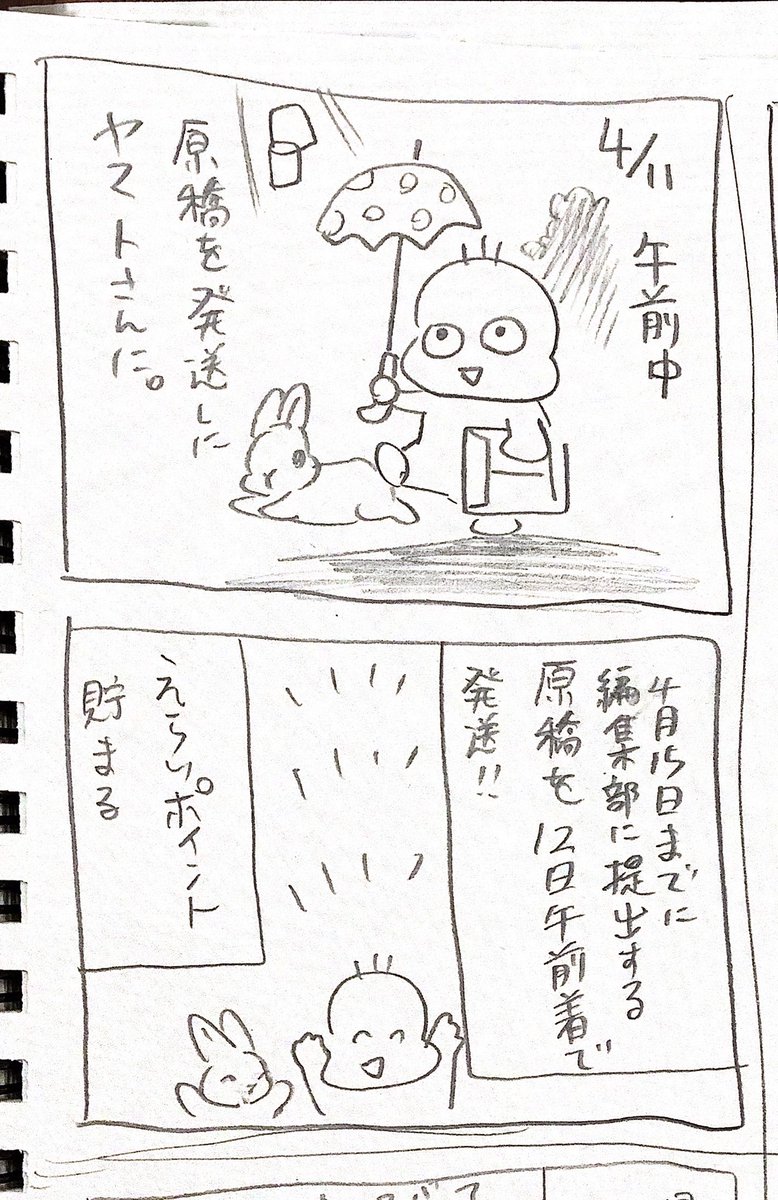 4/11
午前中
原稿を発送しに
ヤマトさんに。
4月15日までに
編集部に提出する
原稿を12日午前着で
発送!!
えらいポイント
貯まる